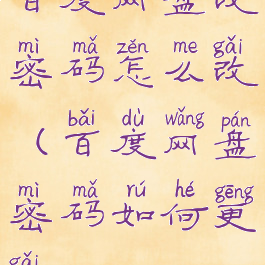 百度网盘改
mì mǎ zěn me gǎi
密码怎么改
bǎi dù wǎng pán
（百度网盘
mì mǎ rú hé gēng
密码如何更
gǎi